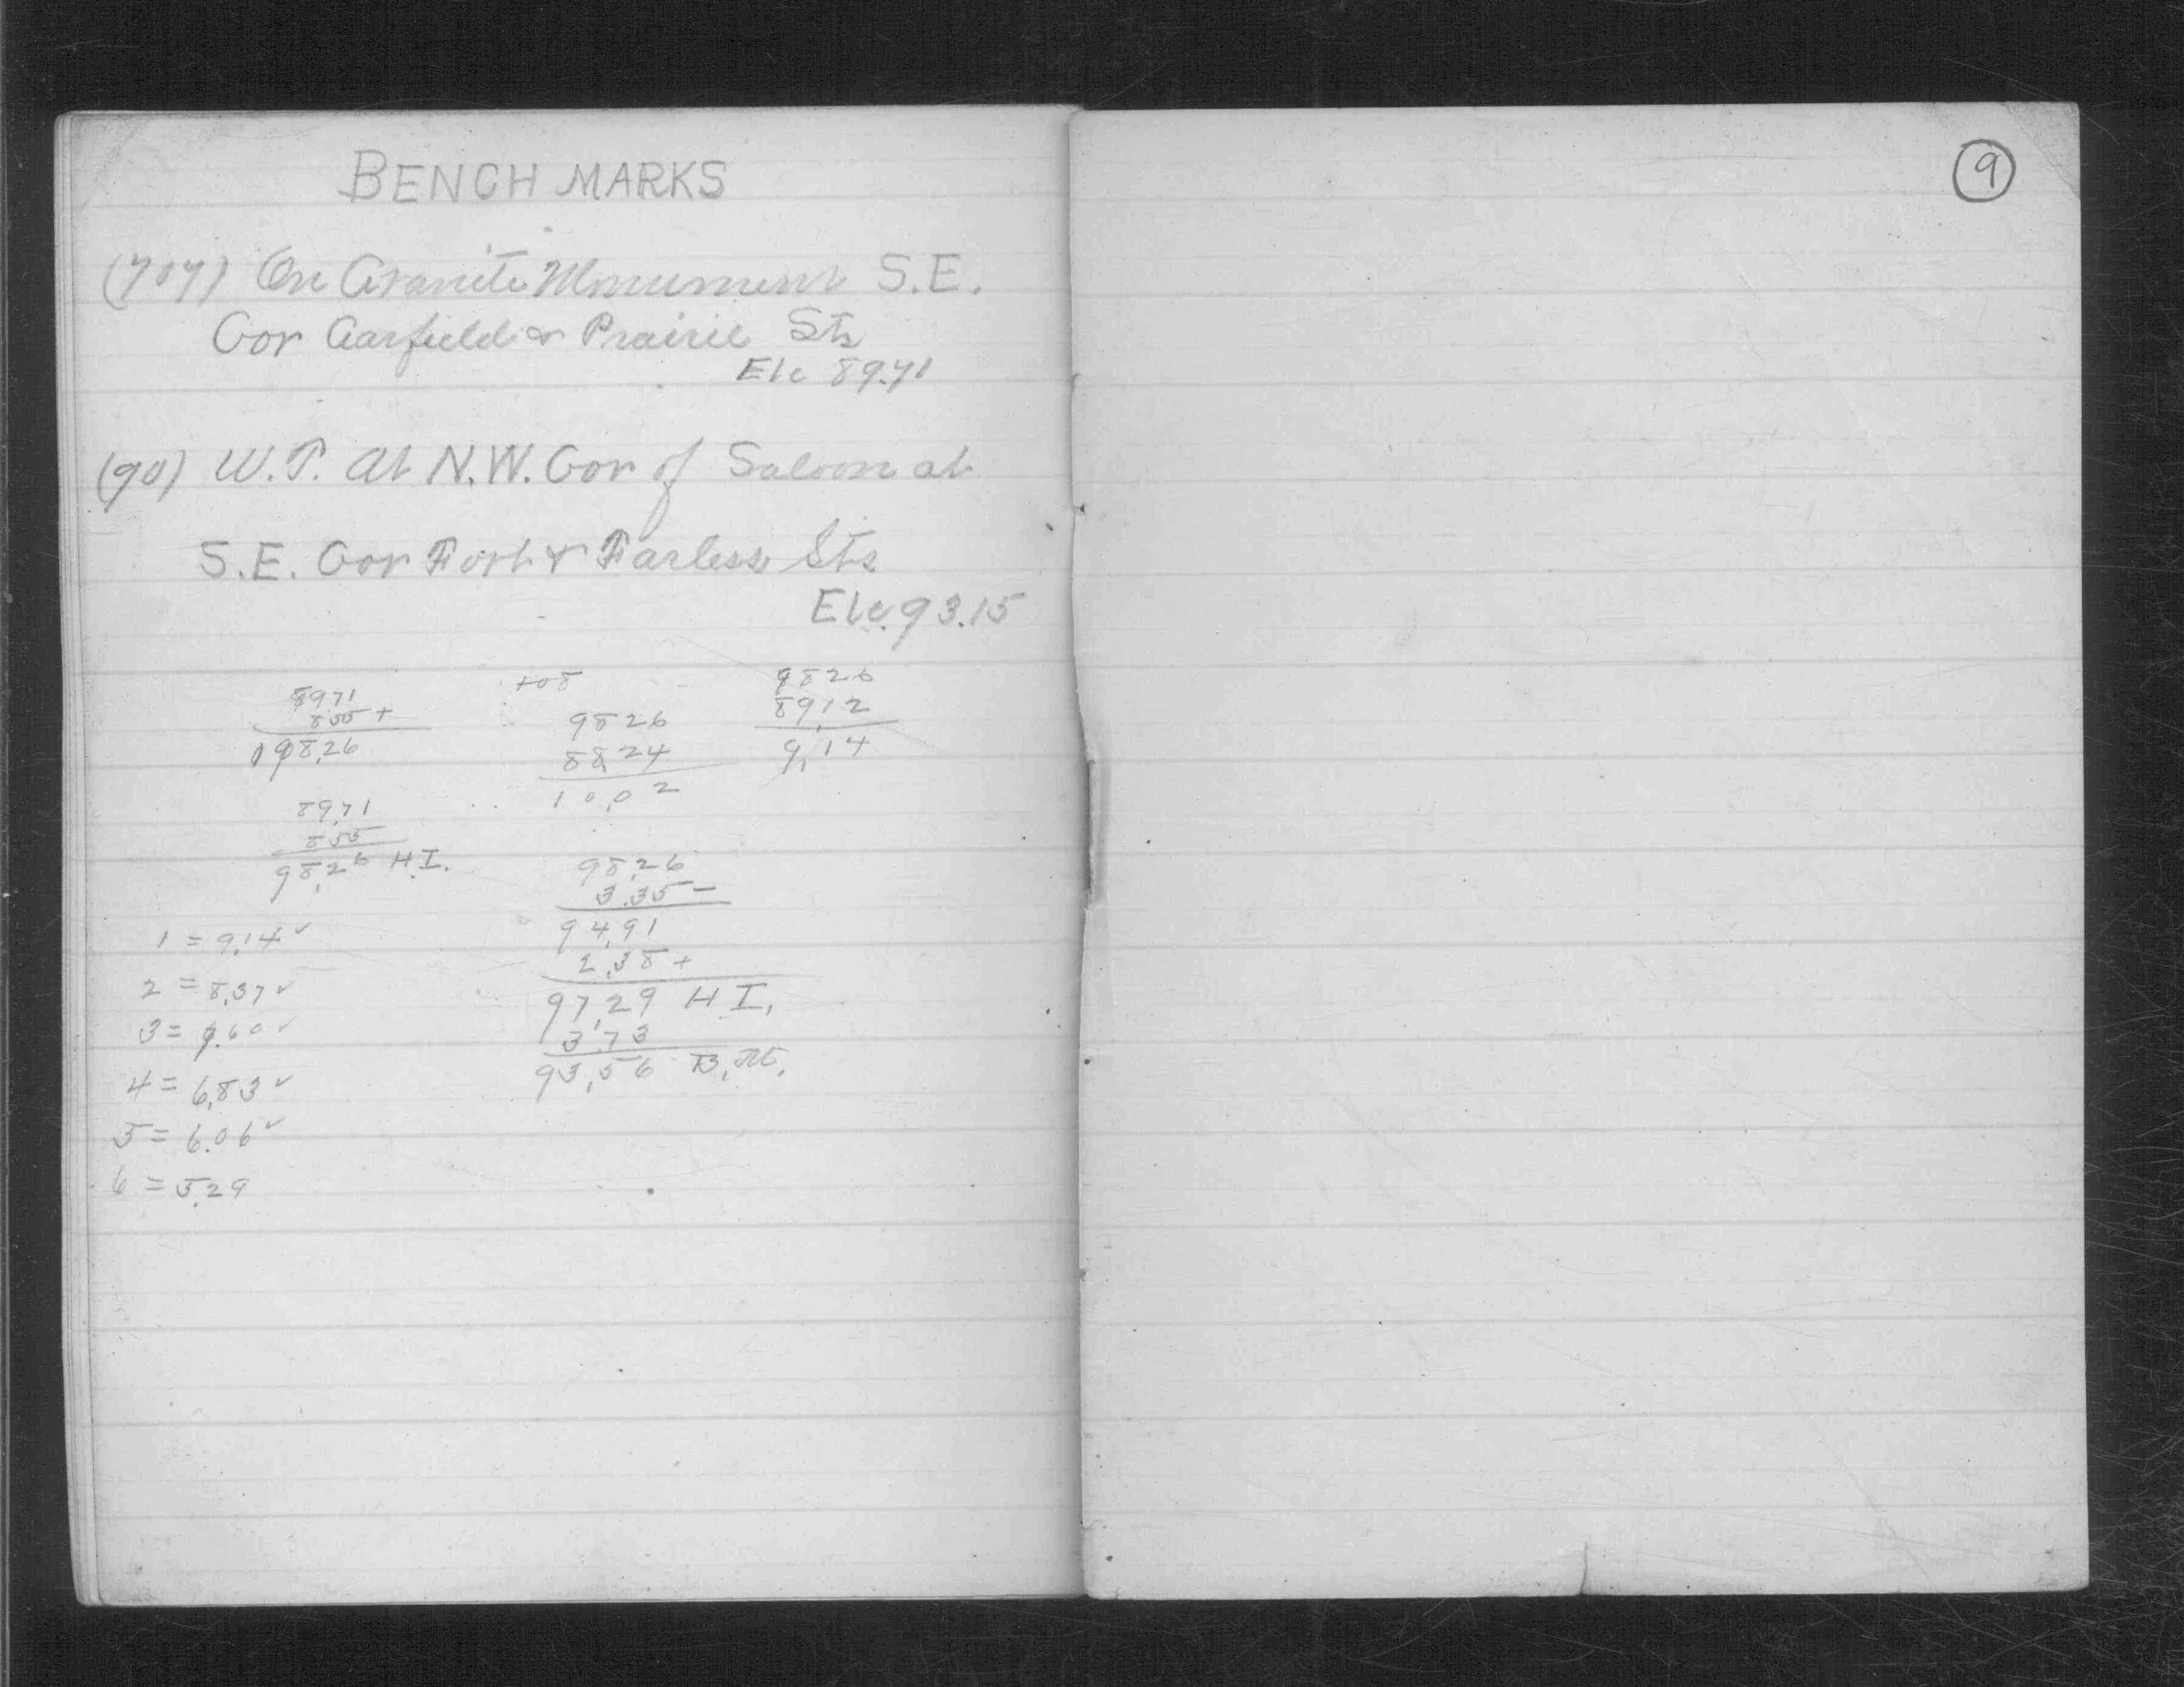 BENCH MARKS
9
(707) On Granite Monument S.E.
Cor Garfield & Prairie Sts
Ele 89.71
(90) W.P. At N.W. Cor of Saloon at
S.E. Cor Fort & Farless Sts
Ele. 93.15
8971
855 +
98,26
+08
9826
88,24
10,02
9826
89,12
9,14
89,71
855
98,26 H.I.
98,26
3.35 -
94,91
2,38 +
97,29 H.I,
3,73
93,56 B.M.
1 = 9.14 ✓
2 = 8.37 ✓
3 = 7.60 ✓
4 = 6,83 ✓
5 = 6.06 ✓
6 = 5.29